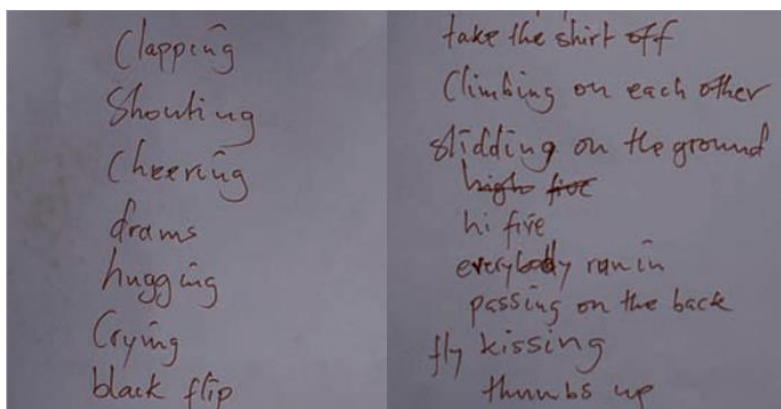 Clapping
Shouting
Cheering
drams
hugging
Crying
black flip
take the shirt off
Climbing on each other
slidding on the ground
high five
hi five
everybody run in
passing on the back
fly kissing
thumbs up